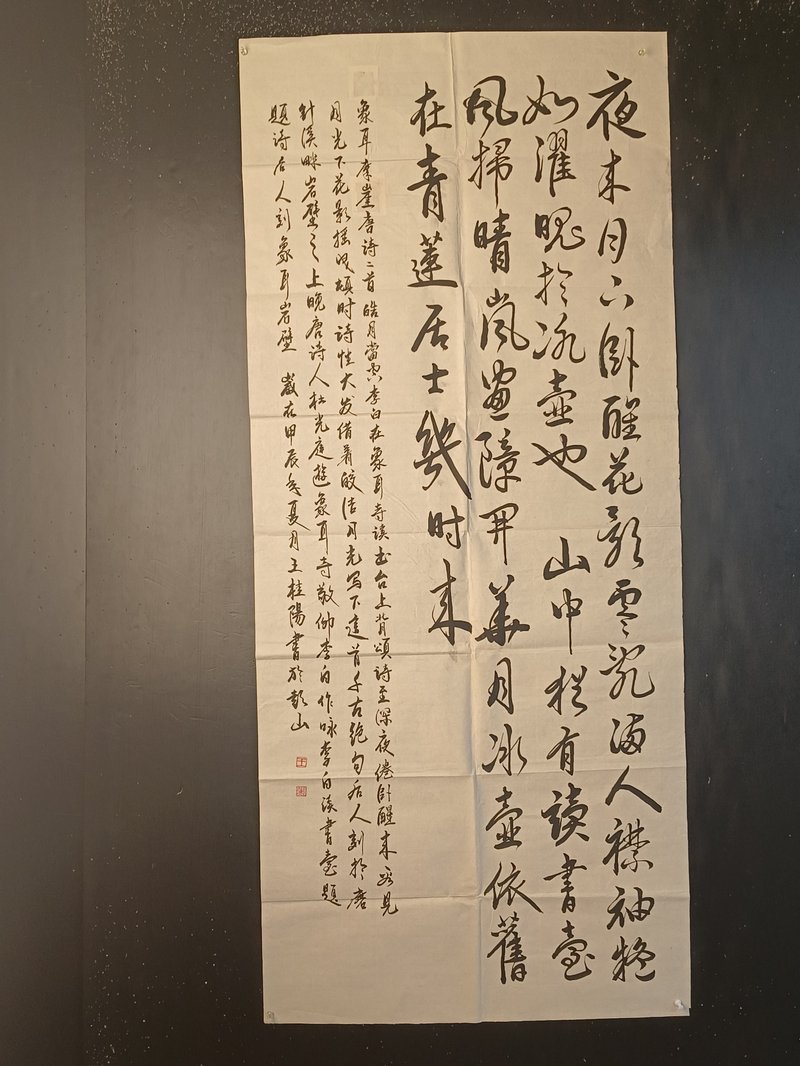 夜来月下卧醒花影零乱满人襟袖疑
如濯魄於冰壶也 山中犹有读书台
风扫晴岚画障开华月冰壶依旧
在青莲居士几时来
象耳摩崖唐诗二首皓月当空李白在象耳寺读书台上背颂诗至深夜倦卧醒来只见
月光下花影摇曳顿时诗性大发借着皎洁月光写下这首千古绝句后人刻于磨
针溪畔岩壁之上晚唐诗人杜光庭游象耳寺敬仰李白作咏李白读书台题
题诗后人刻象耳岩壁 岁在甲辰年夏月王桂阳书於彭山